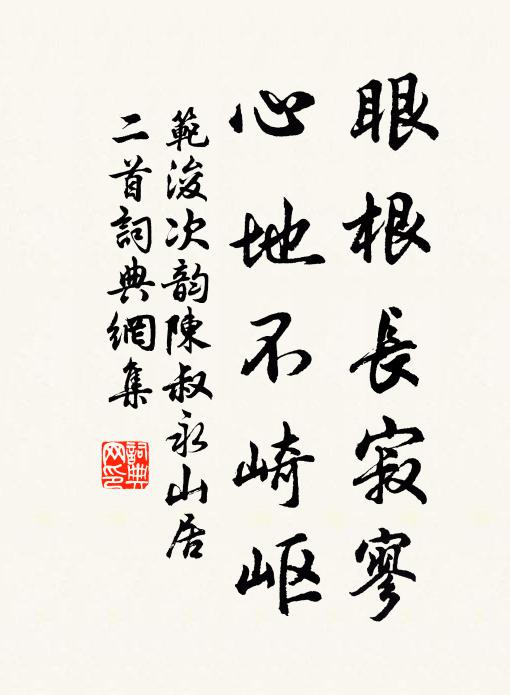 眼根長寂寥
心地不崎岖
範浚次韵陳叔永山居
二首詞典網集
詞典网印